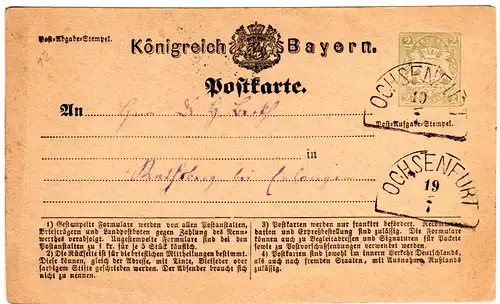 Post-Abgabe-Stempel.
Königreich Bayern.
Postkarte.
OCHSENFURT
19
7
Post-Aufgabe-Stempel.
An Herrn Dr H
in
bei Erlangen
OCHSENFURT
19
7
1) Gestempelte Formulare werden von allen Postanstalten,
Briefträgern und Landpostboten gegen Zahlung des Nenn-
werthes verabfolgt. Ungestempelte Formulare sind bei den
Postanstalten zu 1 kr. für je 5 Stück käuflich.
2) Die Rückseite ist für die brieflichen Mittheilungen bestimmt.
Diese können, gleich der Adresse, mit Tinte, Bleifeder oder
farbigem Stifte geschrieben werden. Der Absender braucht sich
nicht zu nennen.
3) Postkarten werden nur frankirt befördert. Recomman-
dation und Expreßbestellung sind zulässig. Die Formulare
können auch zu Begleitadressen und Signaturen für Pakete
sowie zu Postvorschußsendungen verwendet werden.
4) Postkarten sind sowohl im innern Verkehr Deutschlands,
als auch nach fremden Staaten, mit Ausnahme Rußlands
zulässig.